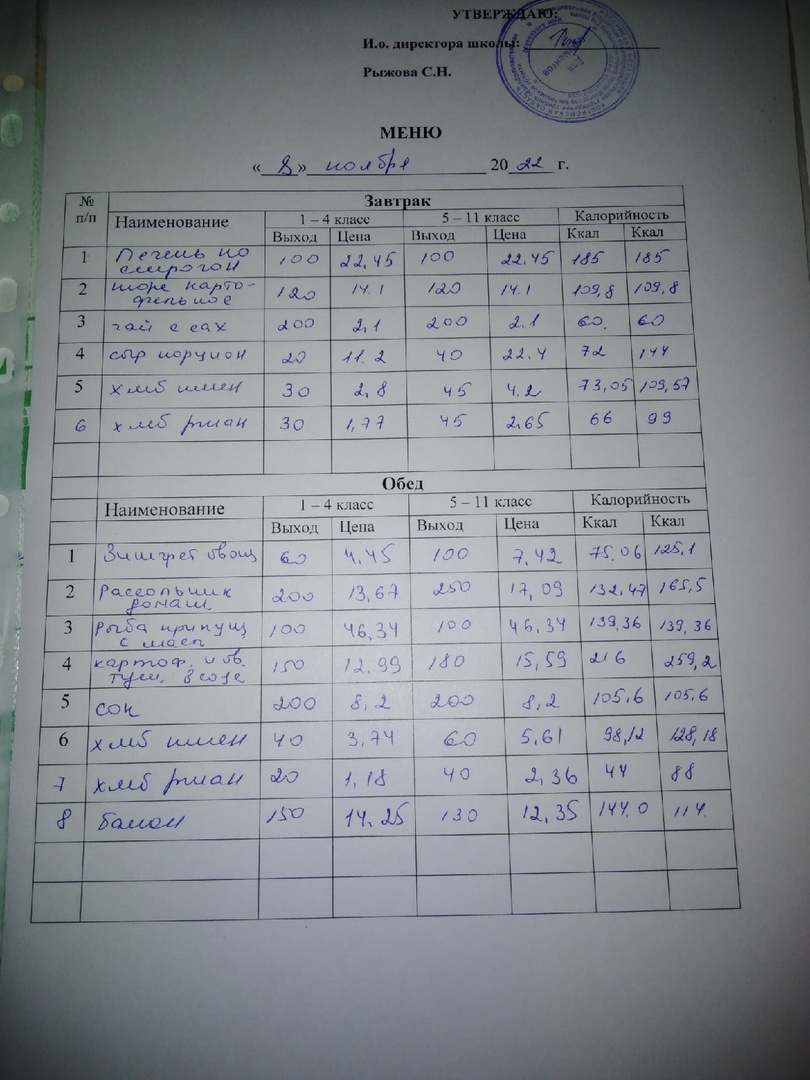 УТВЕРЖДАЮ:
И.о. директора школы:
Рыжова С.Н.
МЕНЮ
« 8 » ноября 2022 г.
№ п/п Завтрак
Наименование 1 – 4 класс 5 – 11 класс Калорийность
Выход Цена Выход Цена Ккал Ккал
1 Печень по 100 22,45 100 22,45 185 185
строгон
2 пюре карто- 120 14.1 120 14.1 109,8 109,8
фельное
3 чай с сах 200 2,1 200 2.1 60. 60
4 сыр порцион 20 11.2 40 22.4 72 144
5 хлеб пшен 30 2,8 45 4.2 73,05 109,57
6 хлеб ржан 30 1,77 45 2,65 66 99
Обед
Наименование 1 – 4 класс 5 – 11 класс Калорийность
Выход Цена Выход Цена Ккал Ккал
1 Винигрет овощ 60 4.45 100 7,42 75,06 125,1
2 Рассольник 200 13,67 250 17,09 132,47 165,5
домаш.
3 Рыба припущ 100 46,34 100 46,34 139,36 139,36
с масл
4 картоф. и ов. 150 12,99 180 15,59 216 259,2
туш. в соусе
5 сок 200 8,2 200 8,2 105,6 105.6
6 хлеб пшен 40 3,74 60 5,61 98,12 128,18
7 хлеб ржан 20 1,18 40 2,36 44 88
8 банан 150 14,25 130 12,35 144.0 114.